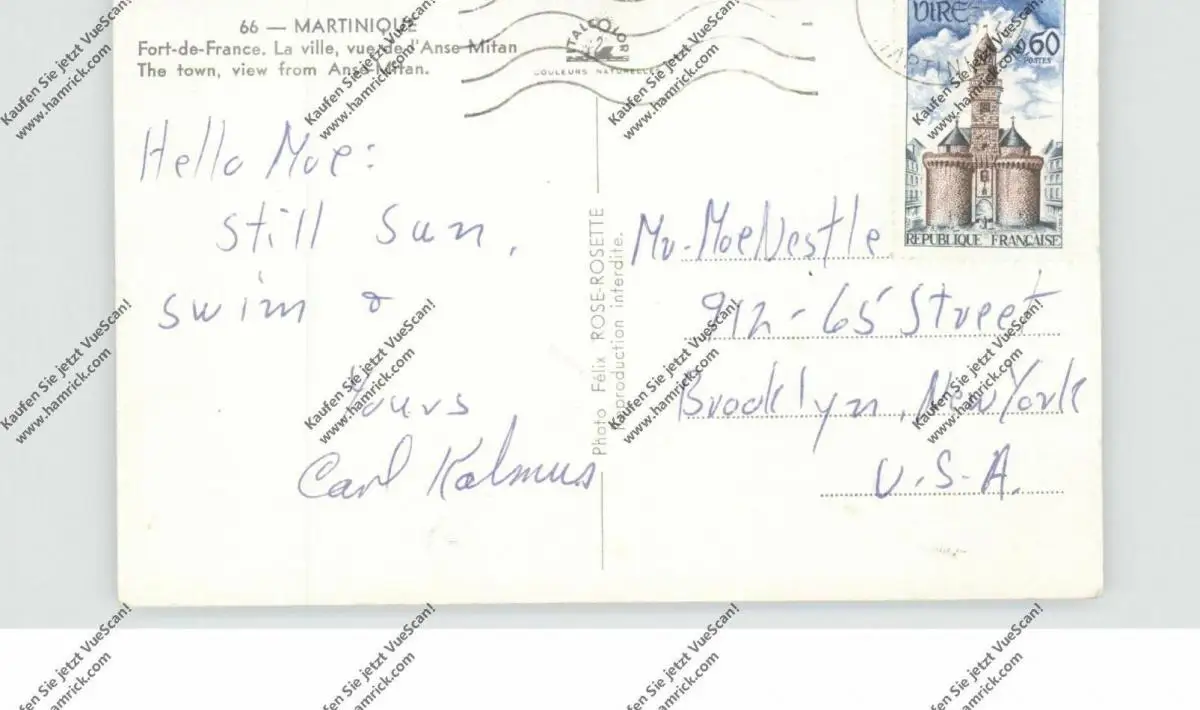 66 — MARTINIQUE
Fort-de-France. La ville, vue de l'Anse Mitan
The town, view from Anse Mitan.
ITALCOLOR
COULEURS NATURELLES
VIRE
0,60
POSTES
REPUBLIQUE FRANÇAISE
MARTINI
Hello Moe:
still sun,
swim &
Yours
Carl Kalmus
Photo Félix ROSE-ROSETTE
Reproduction interdite.
Mr. Moe Nestle
912-65 Street
Brooklyn, New York
U.S.A.
Kaufen Sie jetzt VueScan!
www.hamrick.com
Kaufen Sie jetzt VueScan!
www.hamrick.com
Kaufen Sie jetzt VueScan!
www.hamrick.com
Kaufen Sie jetzt VueScan!
www.hamrick.com
Kaufen Sie jetzt VueScan!
www.hamrick.com
Kaufen Sie jetzt VueScan!
www.hamrick.com
Kaufen Sie jetzt VueScan!
www.hamrick.com
Kaufen Sie jetzt VueScan!
www.hamrick.com
fen Sie jetzt VueScan!
hamrick.com
fen Sie jetzt VueScan!
hamrick.com
fen Sie jetzt VueScan!
hamrick.com
fen Sie jetzt VueScan!
hamrick.com